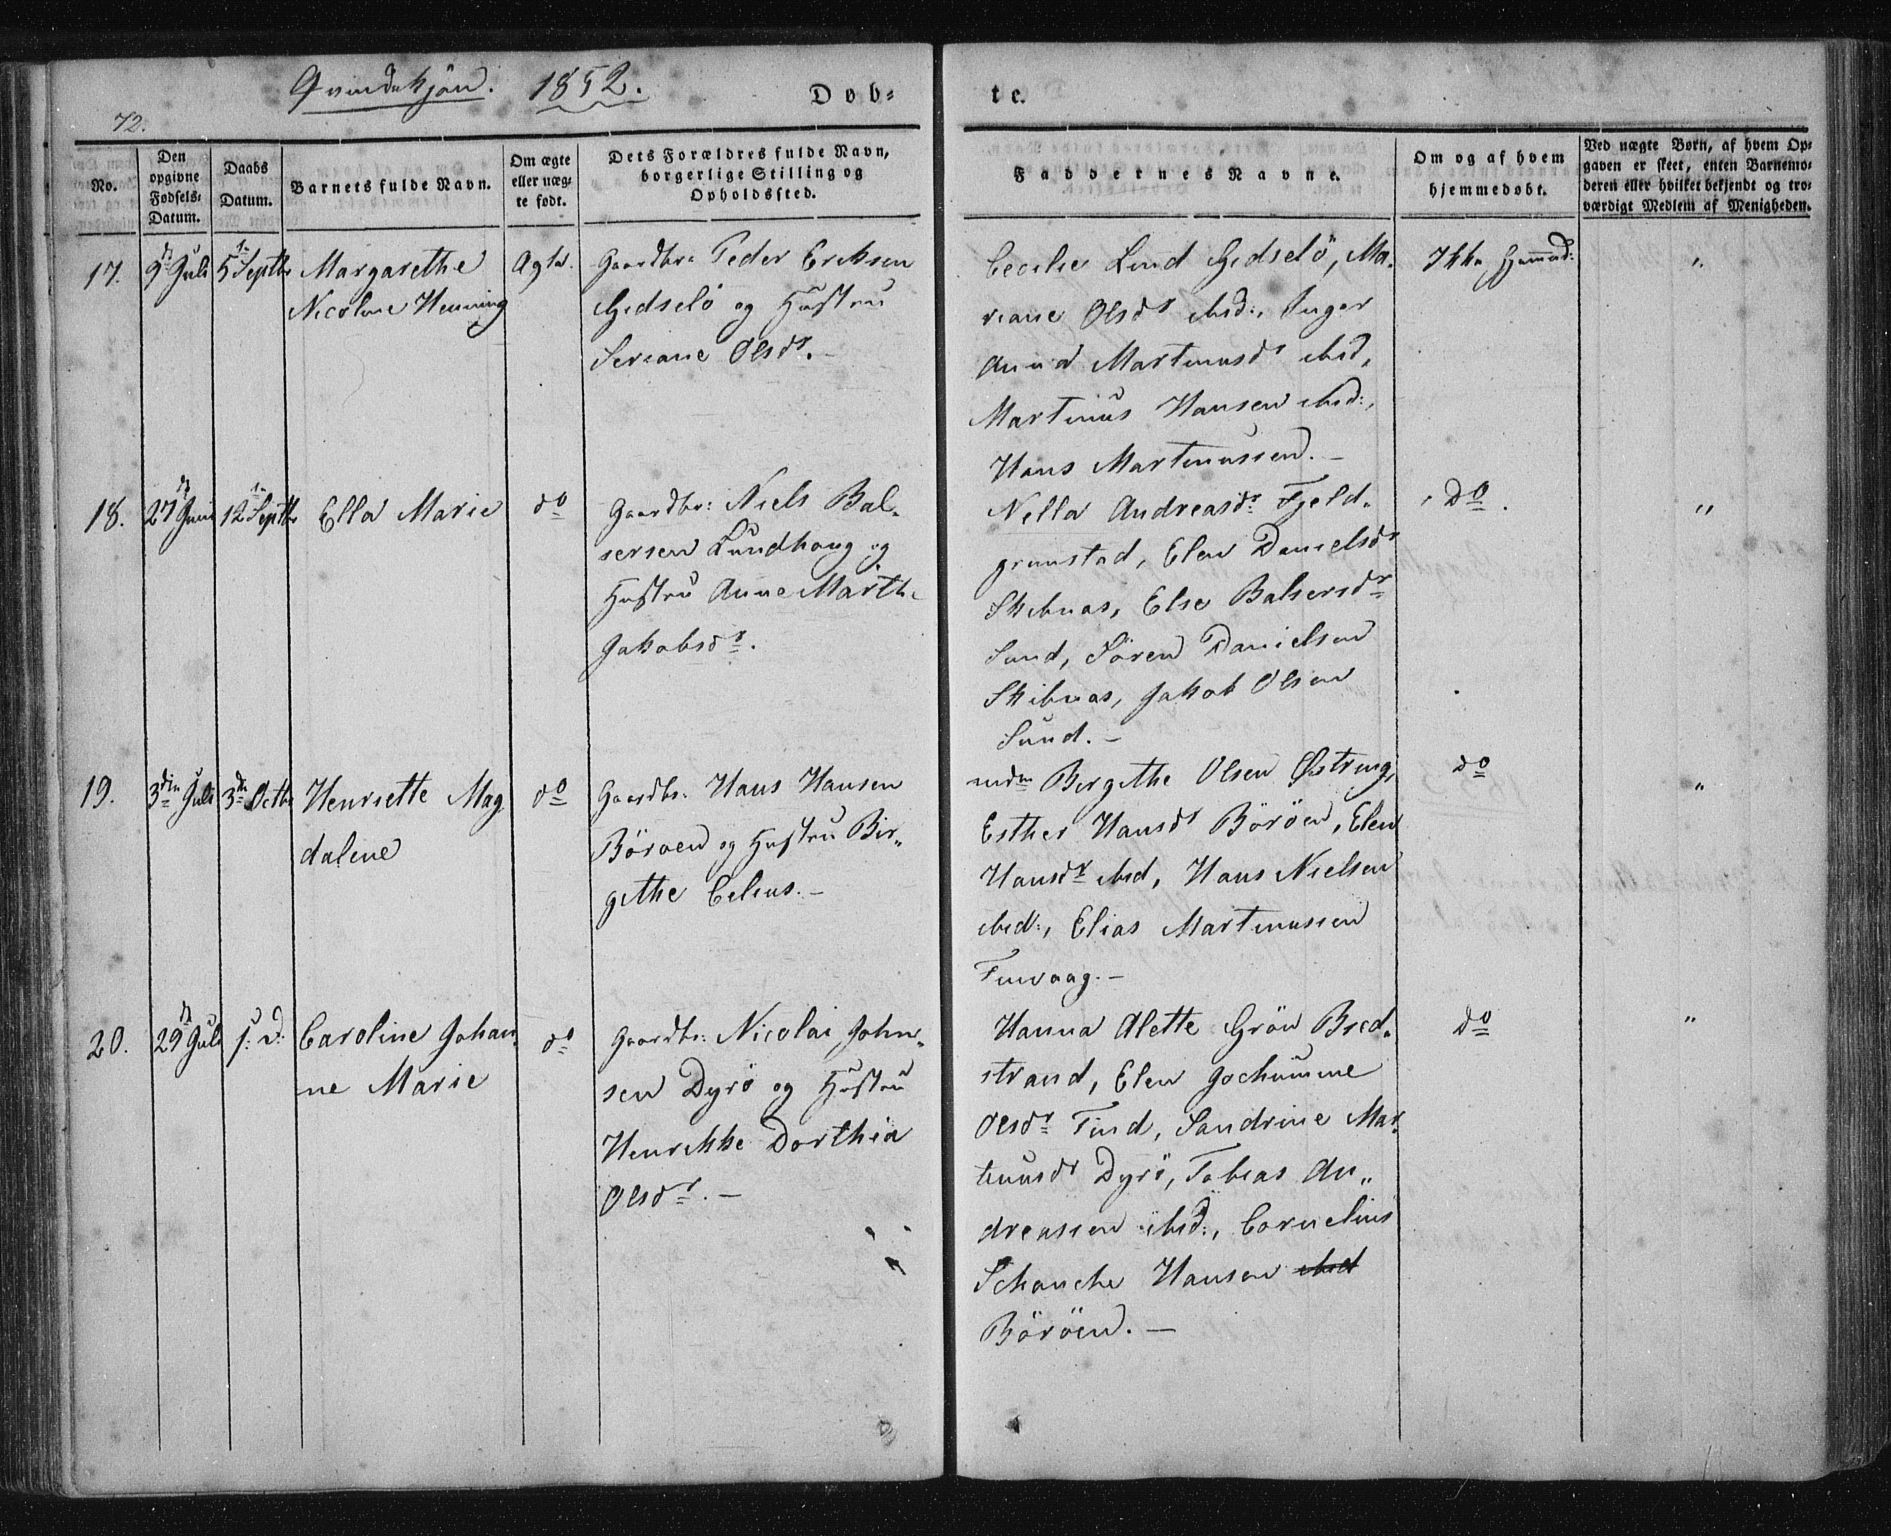 Qvindekjön. 1852. Döb-
te.
72.
No.
Den opgivne Fødsels-Datum.
Daabs Datum.
Barnets fulde Navn.
Om ægte eller uægte født.
Dets Forældres fulde Navn, borgerlige Stilling og Opholdssted.
Faddernes Navne.
Om og af hvem hjemmedøbt.
Ved uægte Børn, af hvem Opgaven er skeet, enten Barnemoderen eller hvilket bekjendt og troværdigt Medlem af Menigheden.
17.
9de Juli
5te Septbr
Margarethe
Nicoline Henning
Ægte.
Gaardbr: Peder Eriksen
Gidselö og Hustru
Seriane Olsdr. –
Cecilie Lind Gidselö, Ma-
riane Olsdr ibid:, Inger
Anna Martinusdr ibid,
Martinus Hansen ibid:,
Hans Martinussen. –
Ikke Hjemmed:
"
18.
27de Juni
12te Septbr
Ella Marie
do
Gaardbr: Niels Bal-
sersen Lundhoug og
Hustru Anne Marthe
Jakobsdr.
Nella Andreasdr. Fjeld-
grunstad, Elen Danielsdr
Skibnas, Else Balsersdr
Sund, Sören Danielsen
Skibnas, Jakob Olsen
Sund. –
Do.
"
19.
3die Juli
3die Octbr
Henriette Mag
dalene
do
Gaardbr. Hans Hansen
Böröen og Hustru Bir-
githe Celius. –
mdm Birgithe Olsen Østring,
Esther Hansdr Böröen, Elen
Hansdr ibid, Hans Nielsen
ibid:, Elias Martinussen
Finvaag. –
do
"
20.
29de Juli
s: D:
Caroline Johan-
ne Marie
do
Gaardbr: Nicolai John-
sen Dyrö og Hustru
Henrikke Dorthia
Olsdr. –
Hanna Alette Grön Bred-
strand, Elen Jochumine
Olsdr Tind, Sandrine Mar-
tinusdr Dyrö, Tobias An-
dreassen ibid:, Cornelius
Schanche Hansen ibid
Böröen. –
do
"